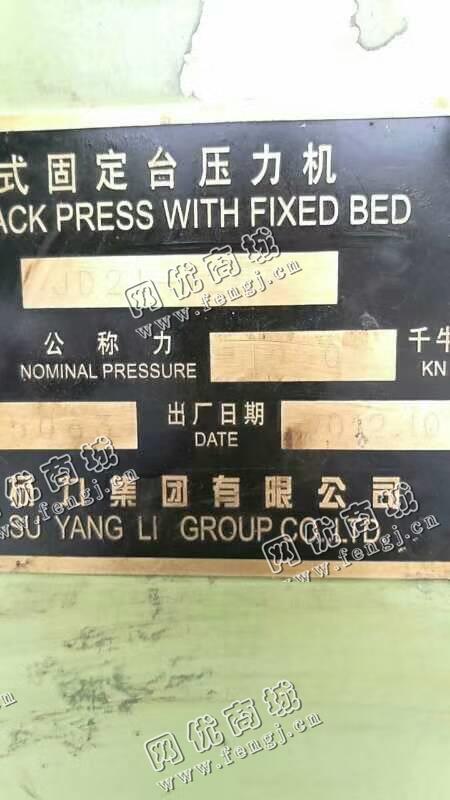 式固定台压力机
ACK PRESS WITH FIXED BED
JD21
公称力 千牛
NOMINAL PRESSURE KN
出厂日期
DATE
扬力集团有限公司
SU YANG LI GROUP CO.,LTD
网优商城
www.fengj.cn
网优商城
www.fengj.cn
网优商城
www.fengj.cn
网优商城
www.fengj.cn